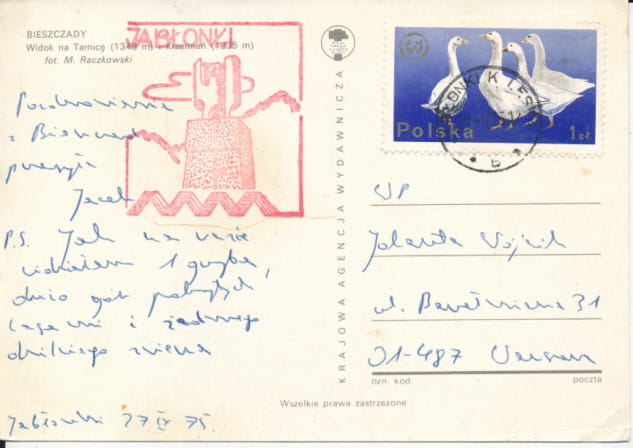 BIESZCZADY
Widok na Tarnicę (1346 m) i Krzemień (1335 m)
fot. M. Raczkowski
JABŁONKI
Pozdrowienia
z Bieszczad
przesyła
Jacek
P.S. Jak na razie
widziałem 1 grzyba,
dużo gór pokrytych
lasami i żadnego
dzikiego zwierza
Jabłonki 27 IX 75.
KRAJOWA AGENCJA WYDAWNICZA
Polska 1 zł
B
WP
Jolanta Wójcik
ul. 31
01-487 Warszawa
ozn. kod: poczta
Wszelkie prawa zastrzeżone